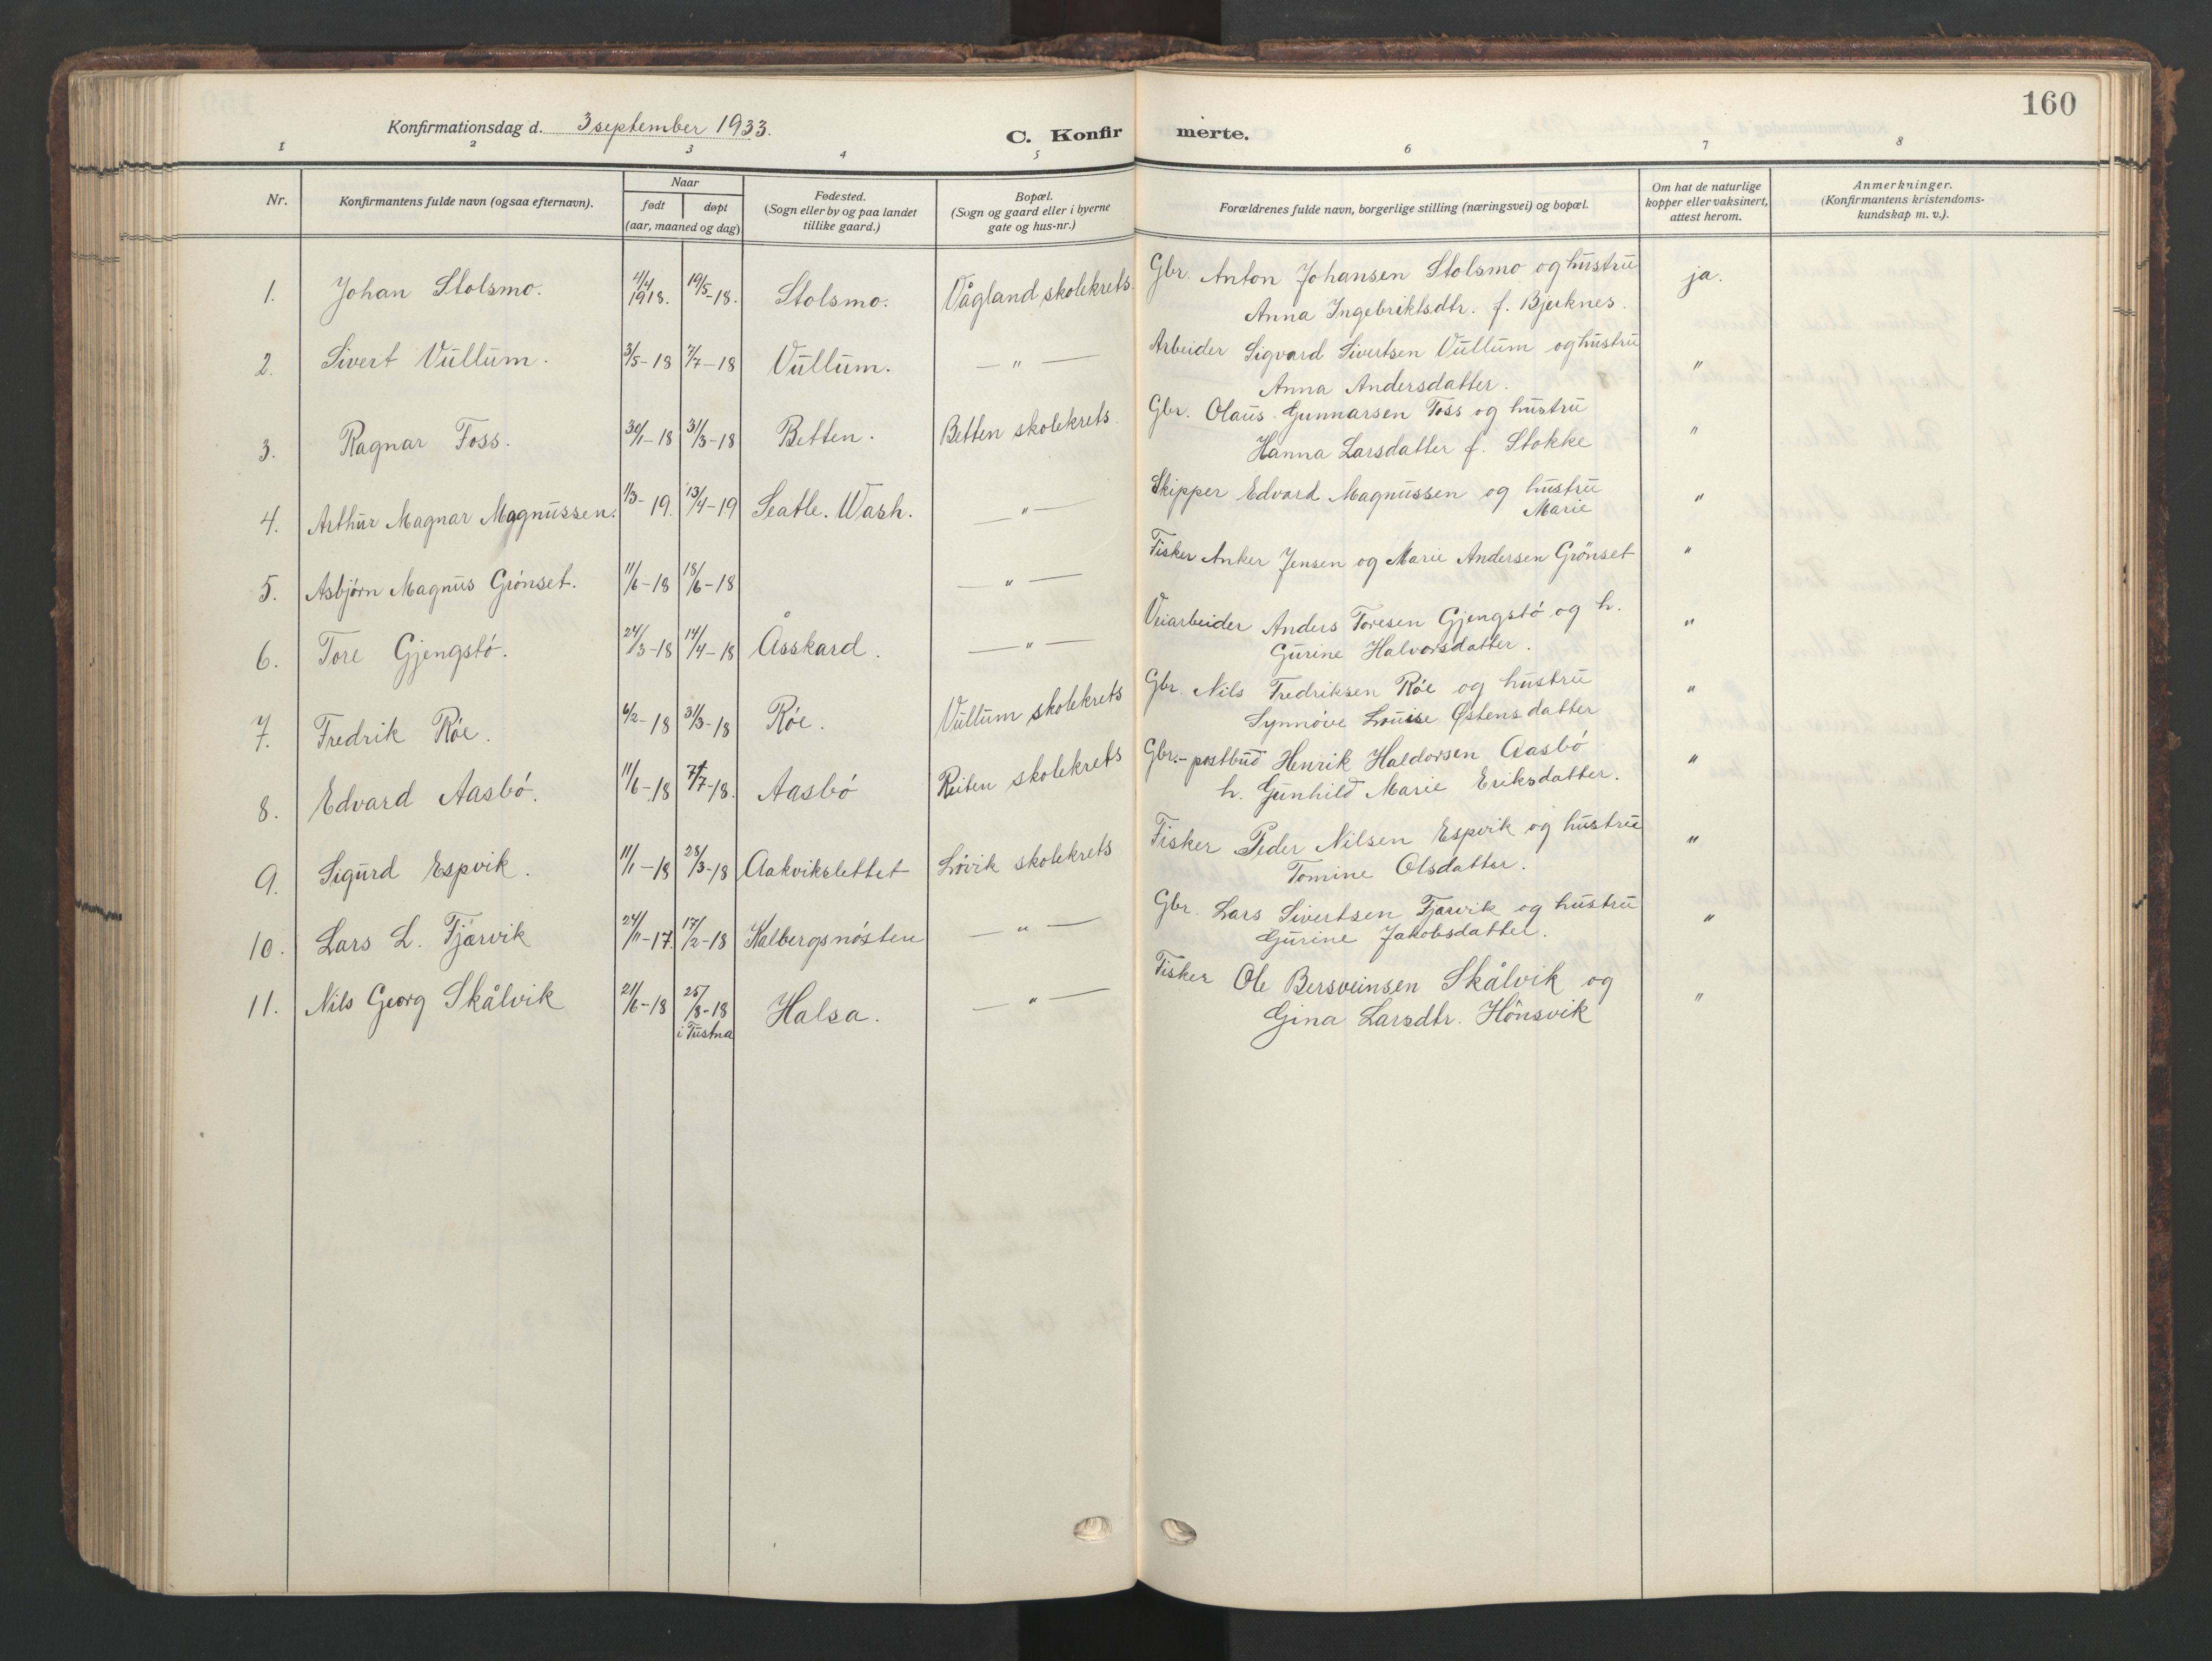 160
Konfirmationsdag d. 3 september 1933.
C. Konfirmerte.
1 2 3 4 5 6 7 8
Nr.
Konfirmantens fulde navn (ogsaa efternavn).
Naar
født døpt
(aar, maaned og dag)
Fødested.
(Sogn eller by og paa landet
tillike gaard.)
Bopæl.
(Sogn og gaard eller i byerne
gate og hus-nr.)
Forældrenes fulde navn, borgerlige stilling (næringsvei) og bopæl.
Om hat de naturlige
kopper eller vaksinert,
attest herom.
Anmerkninger.
(Konfirmantens kristendoms-
kundskap m. v.).
1. Johan Stolsmo. 4/4 1918. 19/5-18. Stolsmo. Vågland skolekrets. Gbr. Anton Johansen Stolsmo og hustru ja.
Anna Ingebriktsdtr. f. Bjerknes.
2. Sivert Vullum. 3/5-18 7/7-18 Vullum. — " — Arbeider Sigvard Sivertsen Vullum og hustru "
Anna Andersdatter.
3. Ragnar Foss. 30/1-18 31/3-18 Betten. Betten skolekrets Gbr. Olaus Gunnarsen Foss og hustru "
Hanna Larsdatter f. Stokke
4. Arthur Magnar Magnussen. 1/3-19. 13/4-19 Seatle. Wash. — " — Skipper Edvard Magnussen og hustru "
Marie
5. Asbjørn Magnus Grönset. 11/6-18 18/6-18 — " — Fisker Anker Jensen og Marie Andersen Grönset "
6. Tore Gjengstö. 24/3-18 14/4-18 Åsskard. — " — Veiarbeider Anders Toresen Gjengstö og h. "
Gurine Halvorsdatter.
7. Fredrik Röe. 6/2-18 31/3-18 Röe. Vullum skolekrets Gbr. Nils Fredriksen Röe og hustru "
Synnöve Louise Østensdatter
8. Edvard Aasbö. 11/6-18 7/7-18. Aasbö Reiten skolekrets Gbr.-postbud Henrik Haldorsen Aasbö "
h. Gunhild Marie Eriksdatter.
9. Sigurd Espvik. 11/1-18 28/3-18 Aakvikslettet Lövik skolekrets Fisker Peder Nilsen Espvik og hustru "
Tomine Olsdatter.
10. Lars L. Fjærvik 24/11-17. 17/2-18 Kalbergsnösten — " — Gbr. Lars Sivertsen Fjærvik og hustru "
Gurine Jakobsdatter.
11. Nils Georg Skålvik 21/6-18 25/8-18 Halsa. — " — Fisker Ole Bersveinsen Skålvik og "
i Tustna Gina Larsdtr. Hönsvik